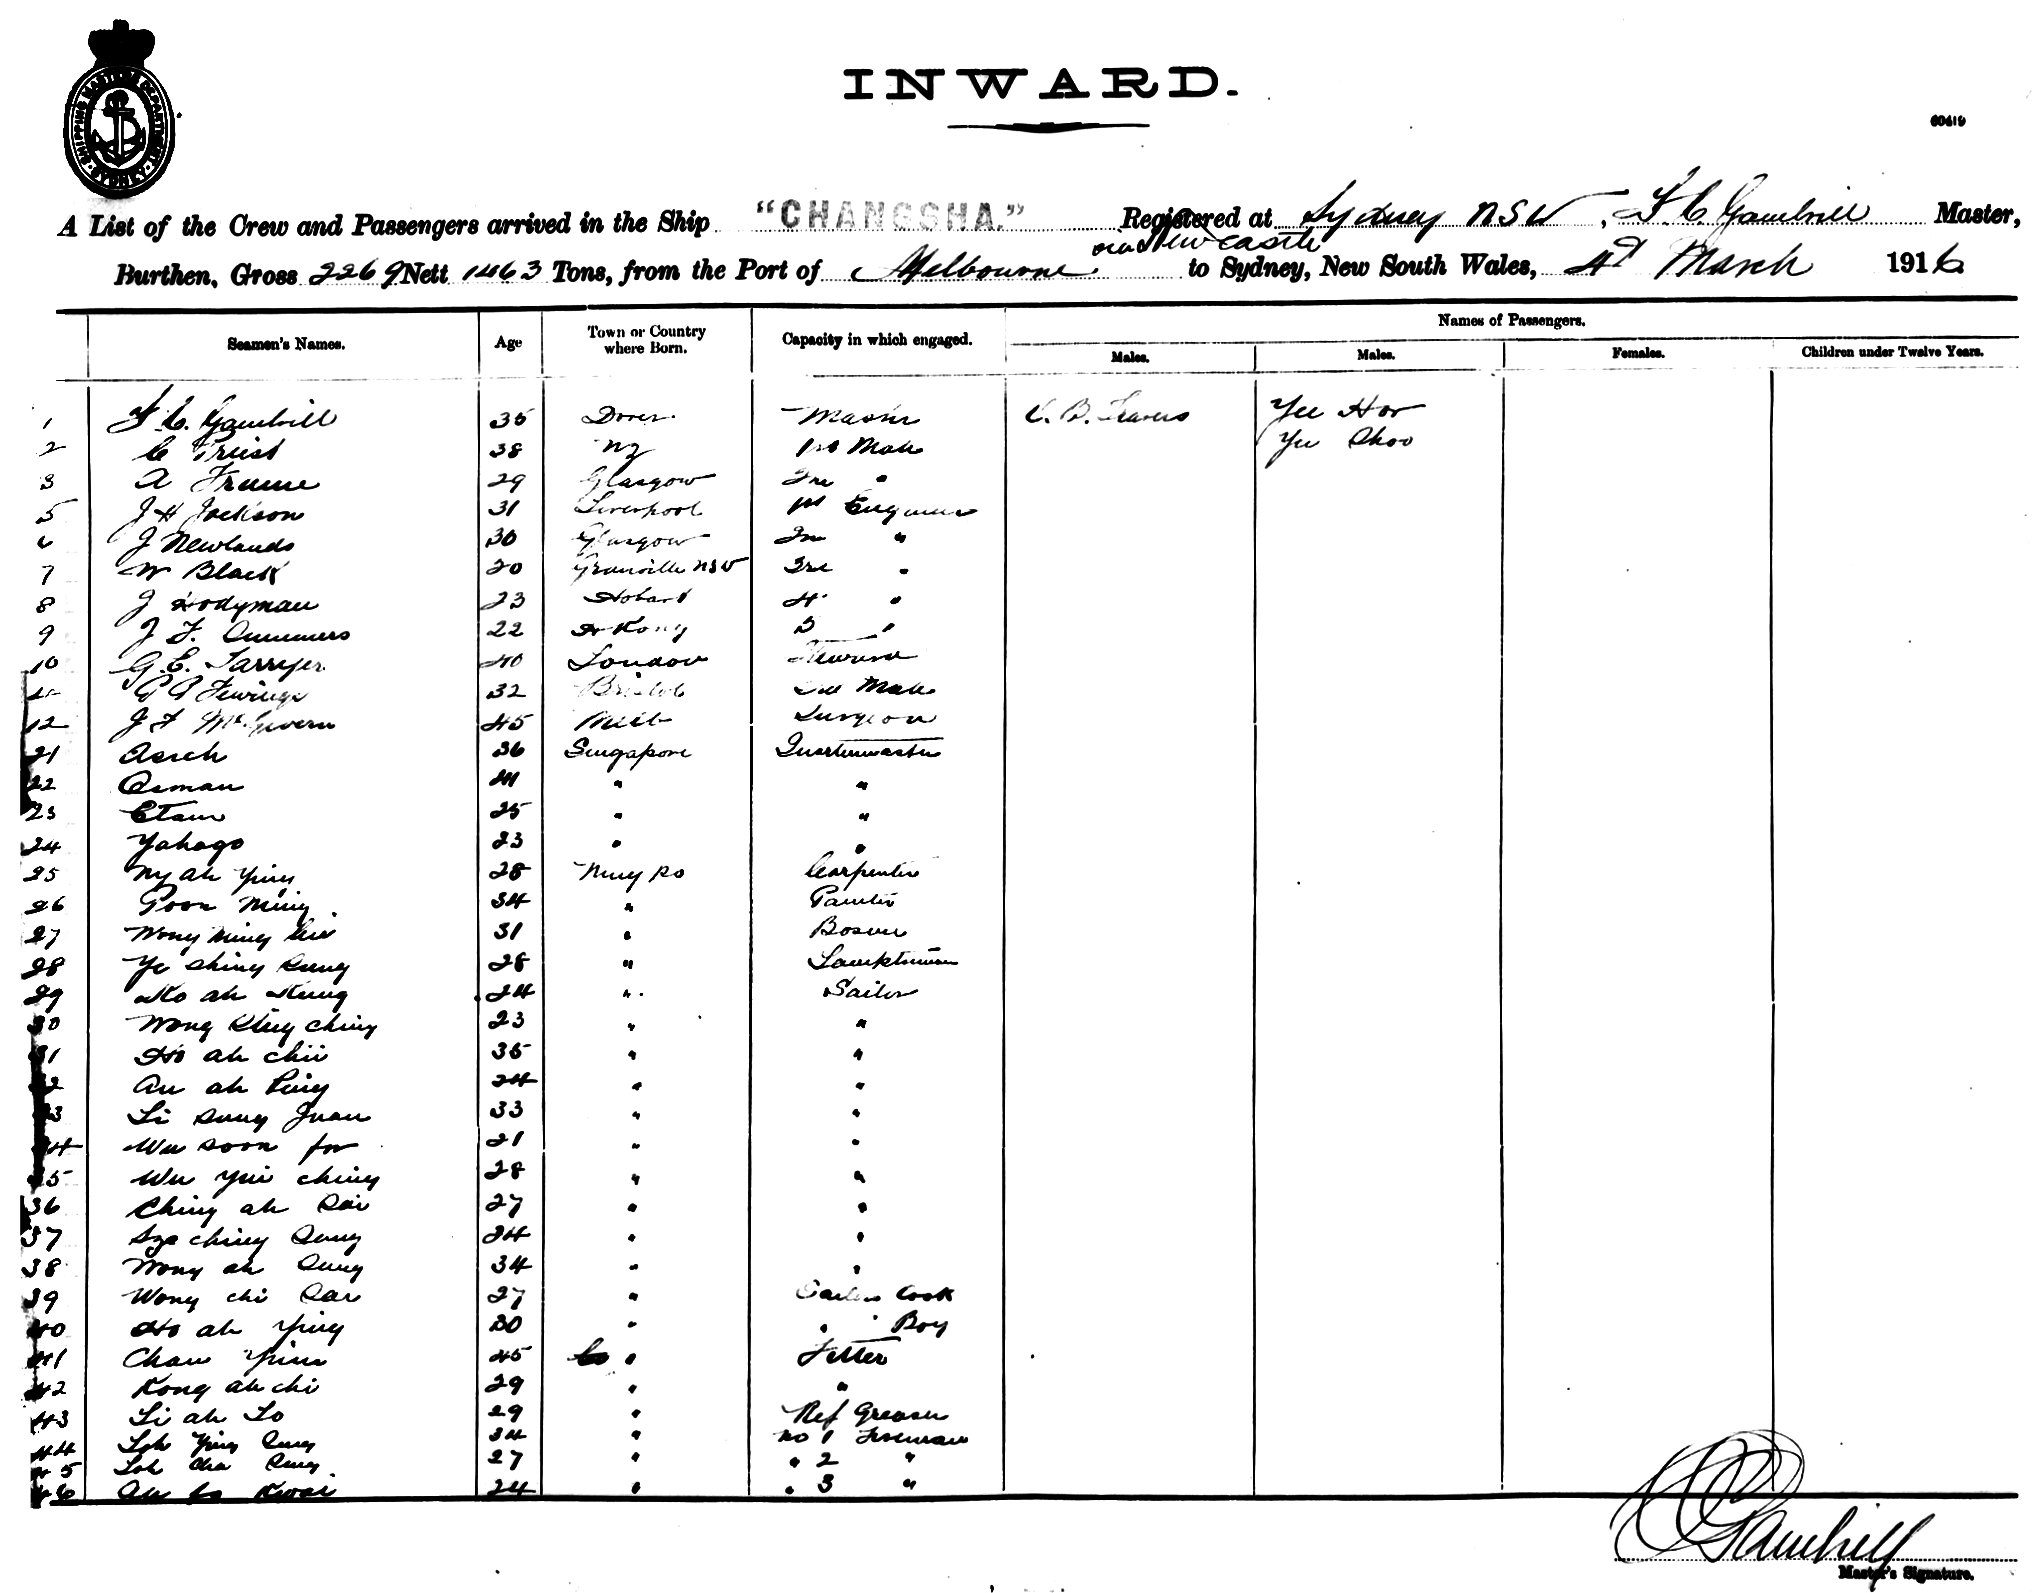 SHIPPING MASTERS DEPARTMENT SYDNEY
INWARD.
60619
A List of the Crew and Passengers arrived in the Ship "CHANGSHA." Registered at Sydney NSW, F C Gambrill Master,
via Newcastle
Burthen, Gross 2269 Nett 1463 Tons, from the Port of Melbourne to Sydney, New South Wales, 4th March 1916
Names of Passengers.
Seamen's Names. Age Town or Country where Born. Capacity in which engaged. Males. Males. Females. Children under Twelve Years.
1 F C. Gambrill 35 Dover Master C. B. Travers Yee Hor
2 C Priest 38 NZ 1st Mate Yee Choo
3 A Frame 29 Glasgow 2nd "
5 J H Jackson 31 Liverpool 1st Engineer
6 J Newlands 30 Glasgow 2nd "
7 W Black 20 Granville NSW 3rd "
8 J Hodyman 23 Hobart 4 "
9 J F. Summers 22 H Kong 5 "
10 G.E. Tarryer 40 London Steward
32 Bristol 3rd Mate
12 J F McGivern 45 Melb Surgeon
21 Aseh 36 Singapore Quartermaster
22 Osman 41 " "
23 Etam 25 " "
24 Yahago 23 " "
25 Ny ah Ying 28 Ning Po Carpenter
26 Poon Ming 34 " Painter
27 Wong Ming 31 " Bosun
28 Ye Ching Sung 28 " Lamptrimmer
29 Ko ah Kung 24 " Sailor
30 Wong Sing Ching 23 " "
31 Ho ah chii 35 " "
32 Au ah Ping 24 " "
33 Li Sung Juan 33 " "
34 Wu Soon for 21 " "
35 Wu Yui ching 28 " "
36 Ching ah Sai 27 " "
37 Sze ching Sung 24 " "
38 Wong ah Sung 34 " "
39 Wong chi Sai 27 " Sailors Cook
40 Ho ah Ying 30 " " Boy
41 Chan Yim 45 " Fitter
42 Kong ah chi 29 " "
43 Li ah Lo 29 " Ref Greaser
44 Loh Ying Sung 34 " No 1 Fireman
45 Loh Cha Sung 27 " " 2 "
46 24 " " 3 "
Gambrill
Master's Signature.